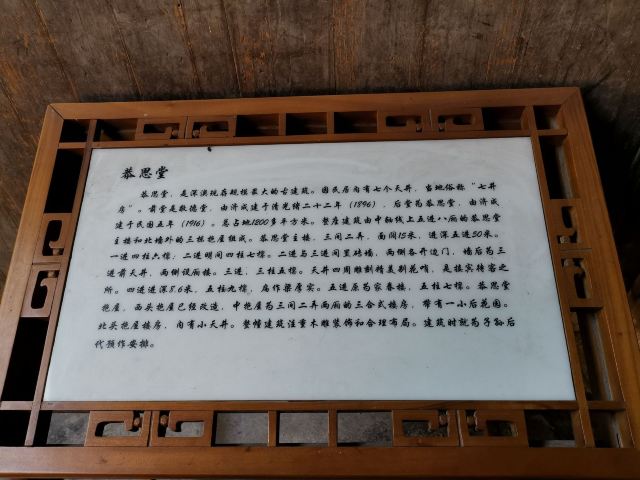 恭思堂
恭思堂，是深澳现存规模最大的古建筑。因民居内有七个天井，当地俗称“七井
房”。前堂是敬德堂，由济成建于清光绪二十二年（1896），后堂为恭思堂，由济成
建于民国五年（1916）。总占地1200多平方米。整座建筑由中轴线上五进八厢的恭思堂
主楼和北墙外的三栋拖屋组成。恭思堂主楼，三间二弄，面阔15米，进深五进50米。
一进四柱六檩；二进明间四柱七檩。二进与三进间置砖墙，两侧各开边门，墙后为三
进前天井，两侧设厢楼。三进，三柱五檩。天井四周雕刻精美别花哨，是接宾待客之
所。四进进深8.6米，五柱九檩，为作梁厚实。五进原为家眷楼，五柱七檩。恭思堂
拖屋，西头拖屋已经改造，中拖屋为三间二弄两厢的三合式楼房，带有一小后花园。
北头拖屋楼房，内有小天井。整幢建筑注重木雕装饰和合理布局。建筑时就为子孙后
代预作安排。